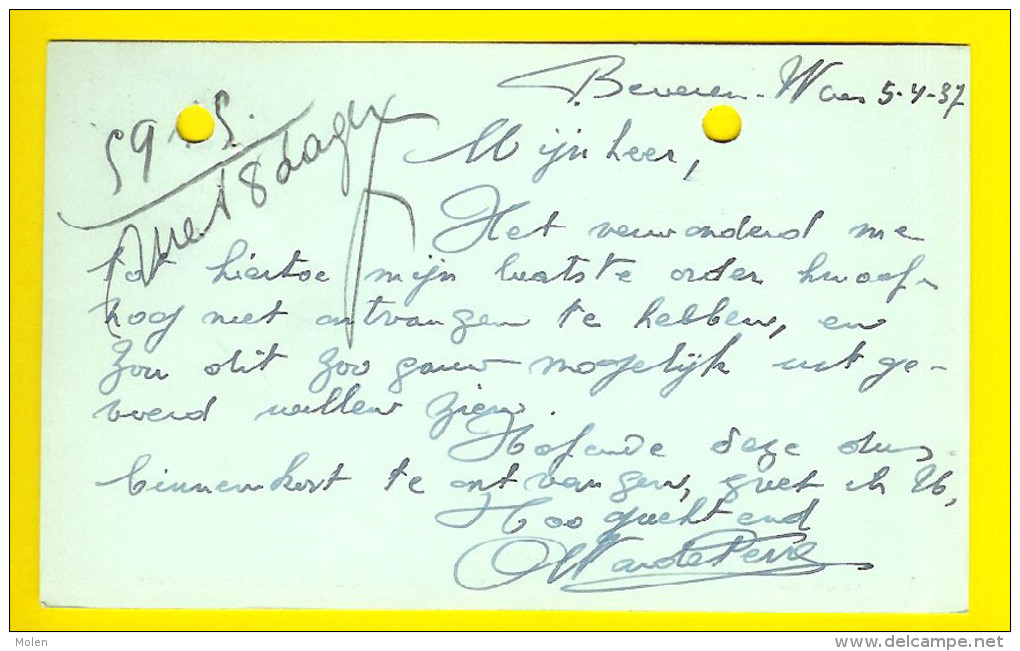 Beveren-Waes 5-4-37
met 8 dagen
Mijnheer,
Het verwonderd me
tot hiertoe mijn laatste order
noog niet ontvangen te hebben, en
zou dit zoo gauw mogelijk uitge-
voerd willen zien.
Hofende deze dus
binnenkort te ontvangen, groet ik U,
Hoogachtend
Molen
www.delcampe.net